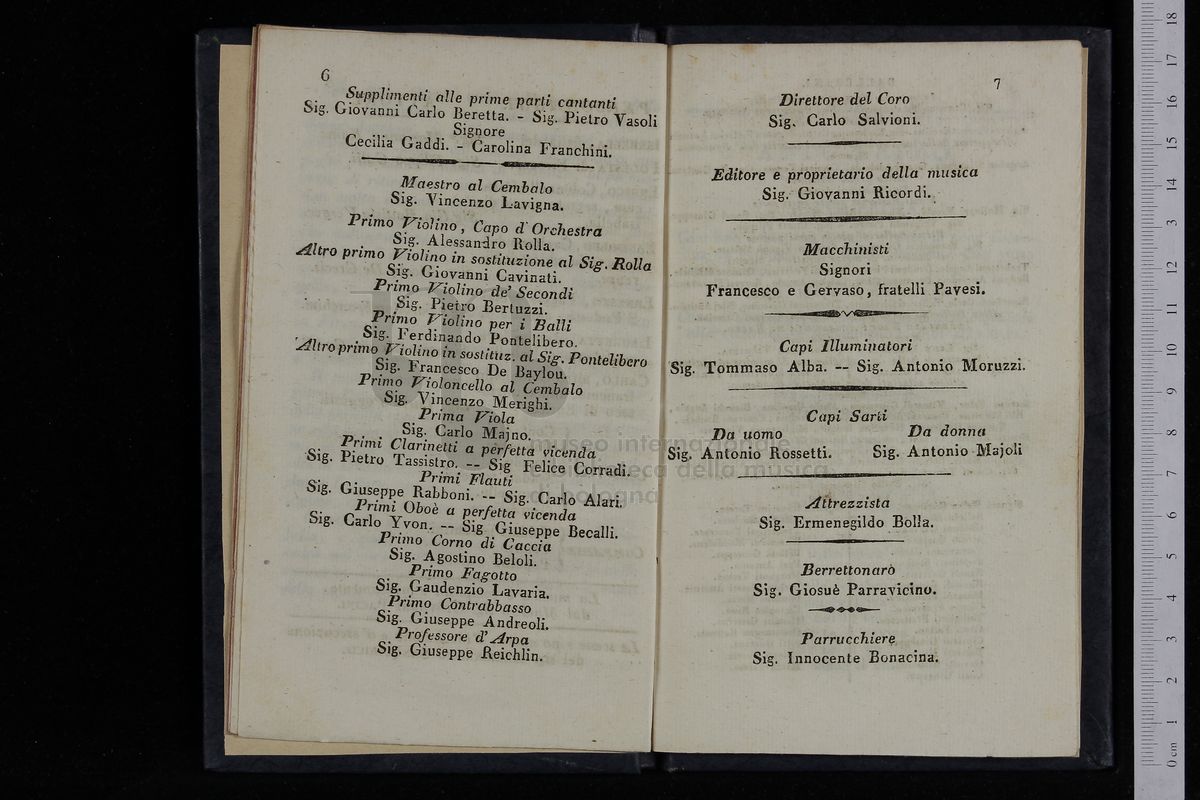 6
Supplimenti alle prime parti cantanti
Sig. Giovanni Carlo Beretta. - Sig. Pietro Vasoli
Signore
Cecilia Gaddi. - Carolina Franchini.
Maestro al Cembalo
Sig. Vincenzo Lavigna.
Primo Violino, Capo d'Orchestra
Sig. Alessandro Rolla.
Altro primo Violino in sostituzione al Sig. Rolla
Sig. Giovanni Cavinati.
Primo Violino de' Secondi
Sig. Pietro Bertuzzi.
Primo Violino per i Balli
Sig. Ferdinando Pontelibero.
Altro primo Violino in sostituz. al Sig. Pontelibero
Sig. Francesco De Baylou.
Primo Violoncello al Cembalo
Sig. Vincenzo Merighi.
Prima Viola
Sig. Carlo Majno.
Primi Clarinetti a perfetta vicenda
Sig. Pietro Tassistro. -- Sig Felice Corradi.
Primi Flauti
Sig. Giuseppe Rabboni. -- Sig. Carlo Alari.
Primi Oboè a perfetta vicenda
Sig. Carlo Yvon. -- Sig Giuseppe Becalli.
Primo Corno di Caccia
Sig. Agostino Beloli.
Primo Fagotto
Sig. Gaudenzio Lavaria.
Primo Contrabbasso
Sig. Giuseppe Andreoli.
Professore d'Arpa
Sig. Giuseppe Reichlin.
7
Direttore del Coro
Sig. Carlo Salvioni.
Editore e proprietario della musica
Sig. Giovanni Ricordi.
Macchinisti
Signori
Francesco e Gervaso, fratelli Pavesi.
Capi Illuminatori
Sig. Tommaso Alba. -- Sig. Antonio Moruzzi.
Capi Sarti
Da uomo Da donna
Sig. Antonio Rossetti. Sig. Antonio Majoli
Attrezzista
Sig. Ermenegildo Bolla.
Berrettonaro
Sig. Giosuè Parravicino.
Parrucchiere
Sig. Innocente Bonacina.
museo internazionale
biblioteca della musica
di bologna
0 cm 1 2 3 4 5 6 7 8 9 10 11 12 13 14 15 16 17 18